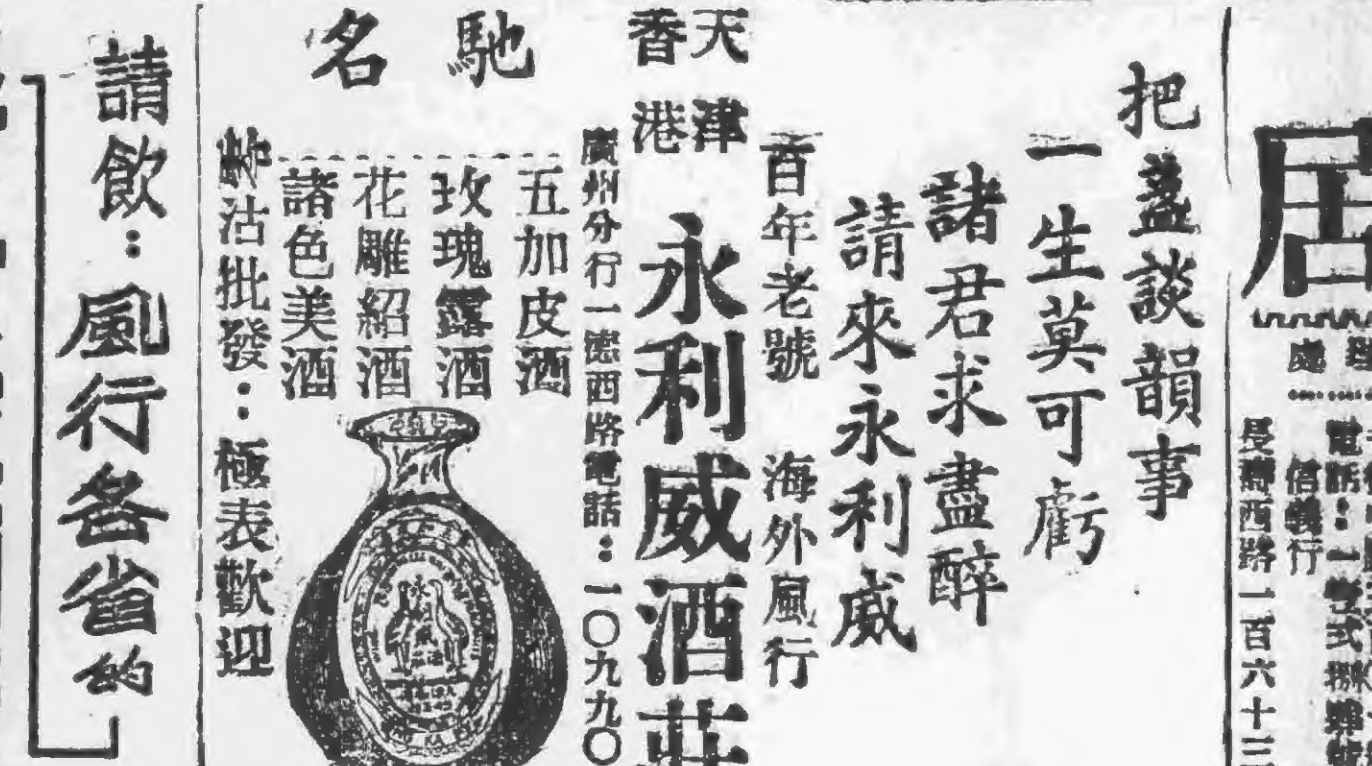 居
處
電話：一
信義行
長壽西路一百六十三
把盞談韻事
一生莫可虧
諸君求盡醉
請來永利威
百年老號 海外風行
天津
香港
永利威酒莊
廣州分行一德西路電話：一〇九九〇
馳名
五加皮酒
玫瑰露酒
花雕紹酒
諸色美酒
沽批發：極表歡迎
請飲：風行各省的